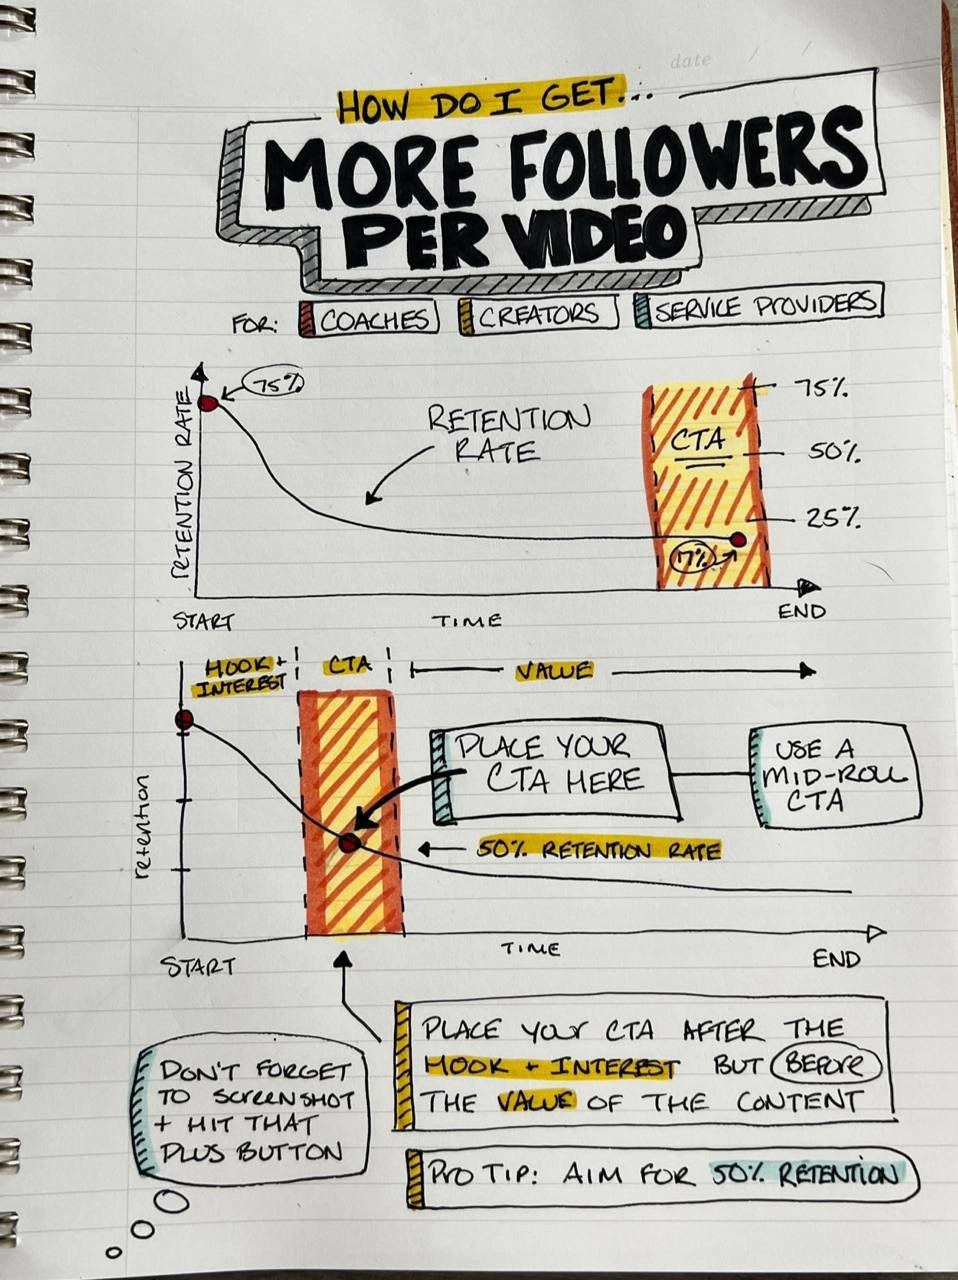 date / /
HOW DO I GET...
MORE FOLLOWERS
PER VIDEO
FOR: COACHES CREATORS SERVICE PROVIDERS
75%
RETENTION RATE
RETENTION
RATE
CTA
75%
50%
25%
17%
START TIME END
HOOK +
INTEREST
CTA
VALUE
retention
PLACE YOUR
CTA HERE
USE A
MID-ROLL
CTA
50% RETENTION RATE
START TIME END
PLACE YOUR CTA AFTER THE
HOOK + INTEREST BUT BEFORE
THE VALUE OF THE CONTENT
DON'T FORGET
TO SCREENSHOT
+ HIT THAT
PLUS BUTTON
PRO TIP: AIM FOR 50% RETENTION